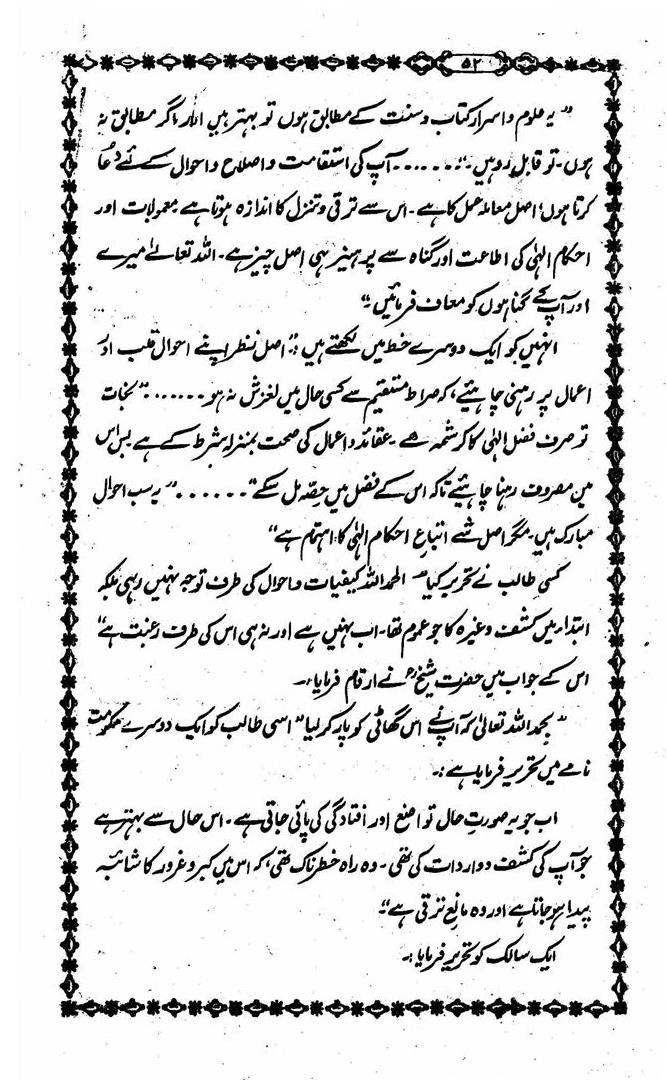 ۵۲
"یہ علوم و اسرار کتاب و سنت کے مطابق ہوں تو بہتر ہیں اور اگر مطابق نہ
ہوں۔ تو قابلِ رد ہیں۔"...... آپ کی استقامت و اصلاح و احوال کے لئے دُعا
کرتا ہوں؛ اصل معاملہ عمل کا ہے۔ اس سے ترقی و تنزل کا اندازہ ہوتا ہے معمولات اور
احکام الٰہی کی اطاعت اور گناہ سے پرہیز ہی اصل چیز ہے۔ اللہ تعالےٰ میرے
اور آپ کے گناہوں کو معاف فرمائیں۔"
انہیں کو ایک دوسرے خط میں لکھتے ہیں: "اصل نظر اپنے احوال قلب اور
اعمال پر رہنی چاہئیے، کہ صراط مستقیم سے کسی حال میں لغزش نہ ہو......." نجات
تو صرف فضل الٰہی کا کرشمہ ہے۔ عقائد و اعمال کی صحت بمنزلہ شرط کے ہے بس اس
میں مصروف رہنا چاہئیے تاکہ اس کے فضل میں حصّہ مل سکے"......" یہ سب احوال
مبارک ہیں۔ مگر اصل شے اتباعِ احکام الٰہی کا اہتمام ہے"
کسی طالب نے تحریر کیا" الحمد للہ کیفیات و احوال کی طرف توجہ نہیں رہی بلکہ
ابتداء میں کشف وغیرہ کا جو عموم تھا۔ اب نہیں ہے اور نہ ہی اس کی طرف رغبت ہے"
اس کے جواب میں حضرت شیخؒ نے ارقام فرمایا،۔
"بحمد اللہ تعالیٰ کہ آپ نے اس گھاٹی کو پار کر لیا" اسی طالب کو ایک دوسرے حکومت
نامے میں تحریر فرمایا ہے:۔
اب جو یہ صورتِ حال تواضع اور افتادگی کی پائی جاتی ہے۔ اس حال سے بہتر ہے
جو آپ کی کشف دواردات کی تھی۔ وہ راہ خطرناک تھی، کہ اس میں کبر و غرور کا شائبہ
پیدا ہو جاتا ہے اور وہ مانع ترقی ہے"۔
ایک سالک کو تحریر فرمایا:۔